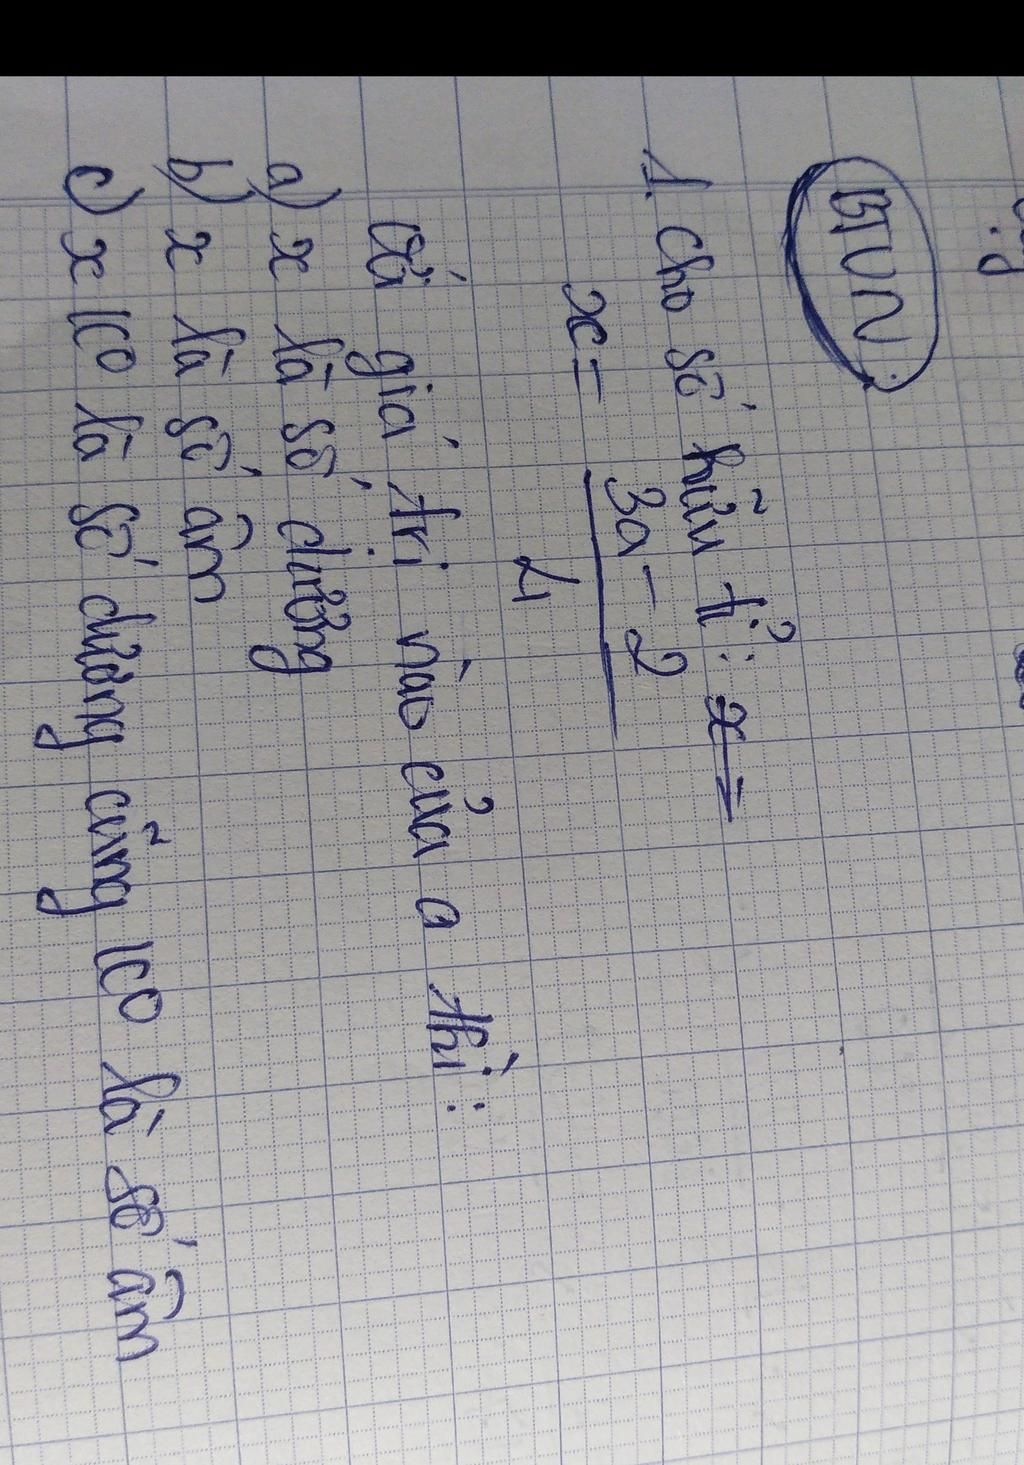 BTVN:
1. Cho số hữu tỉ: x =
x = 3a - 2
4
Với giá trị nào của a thì:
a) x là số dương
b) x là số âm
c) x ko là số dương cũng ko là số âm